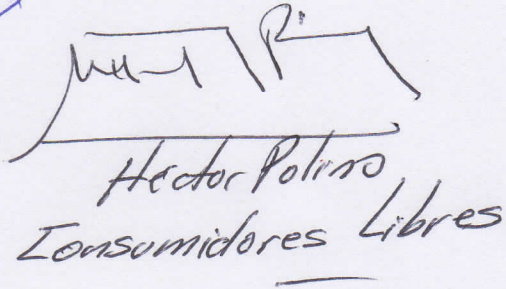 Hector Polino
Consumidores Libres